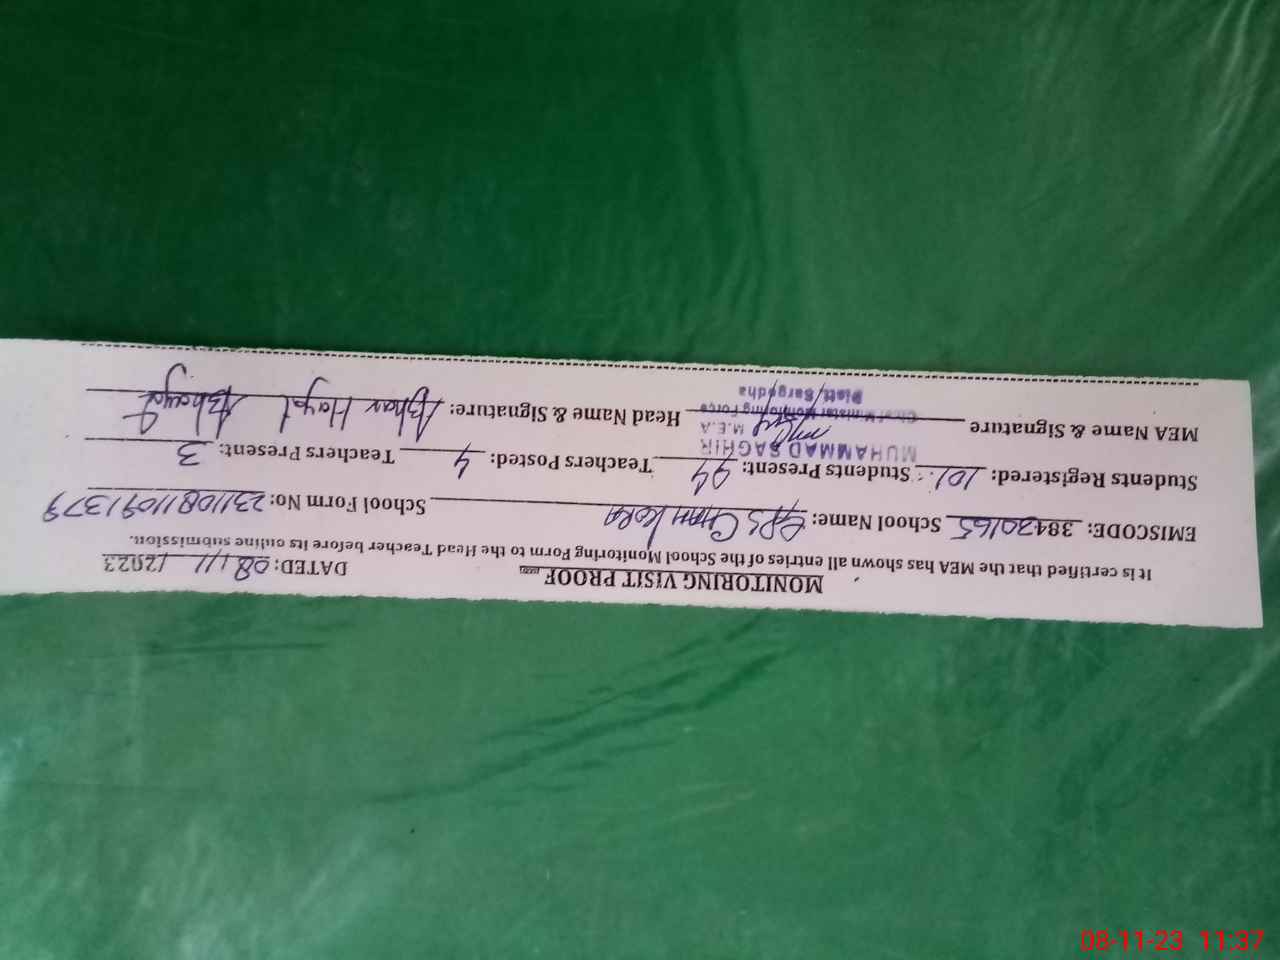 MONITORING VISIT PROOF
DATED: 08/11/2023
It is certified that the MEA has shown all entries of the School Monitoring Form to the Head Teacher before its online submission.
EMISCODE: 38420165 School Name: GPS School Form No: 23110811091379
Students Registered: 101 Students Present: 94 Teachers Posted: 4 Teachers Present: 3
MUHAMMAD SAGHIR
M.E.A
Chief Minister Monitoring Force
Distt: Sargodha
MEA Name & Signature Head Name & Signature: Azhar Hayat
08-11-23 11:37